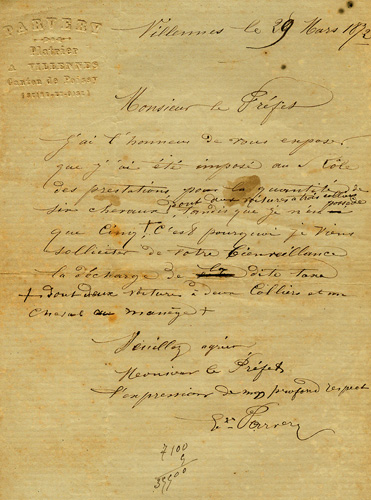 PARVERY
Platrier
A VILLENNES
Canton de Poissy
(SEINE-ET-OISE)
Villennes le 29 Mars 1872
Monsieur le Préfet
J'ai l'honneur de vous exposer
que j'ai été imposé au rôle
des prestations, pour la quantité de
six chevaux, dont deux colliers
tandis que je n'en possède
que Cinq + C'est pourquoi je viens
solliciter de votre Bienveillance
la décharge de la dite taxe
+ dont deux voitures à deux Colliers et un
cheval au manège +
Veuillez agréer
Monsieur le Préfet
l'expression de mon profond respect
Parvery
7100
5
35500